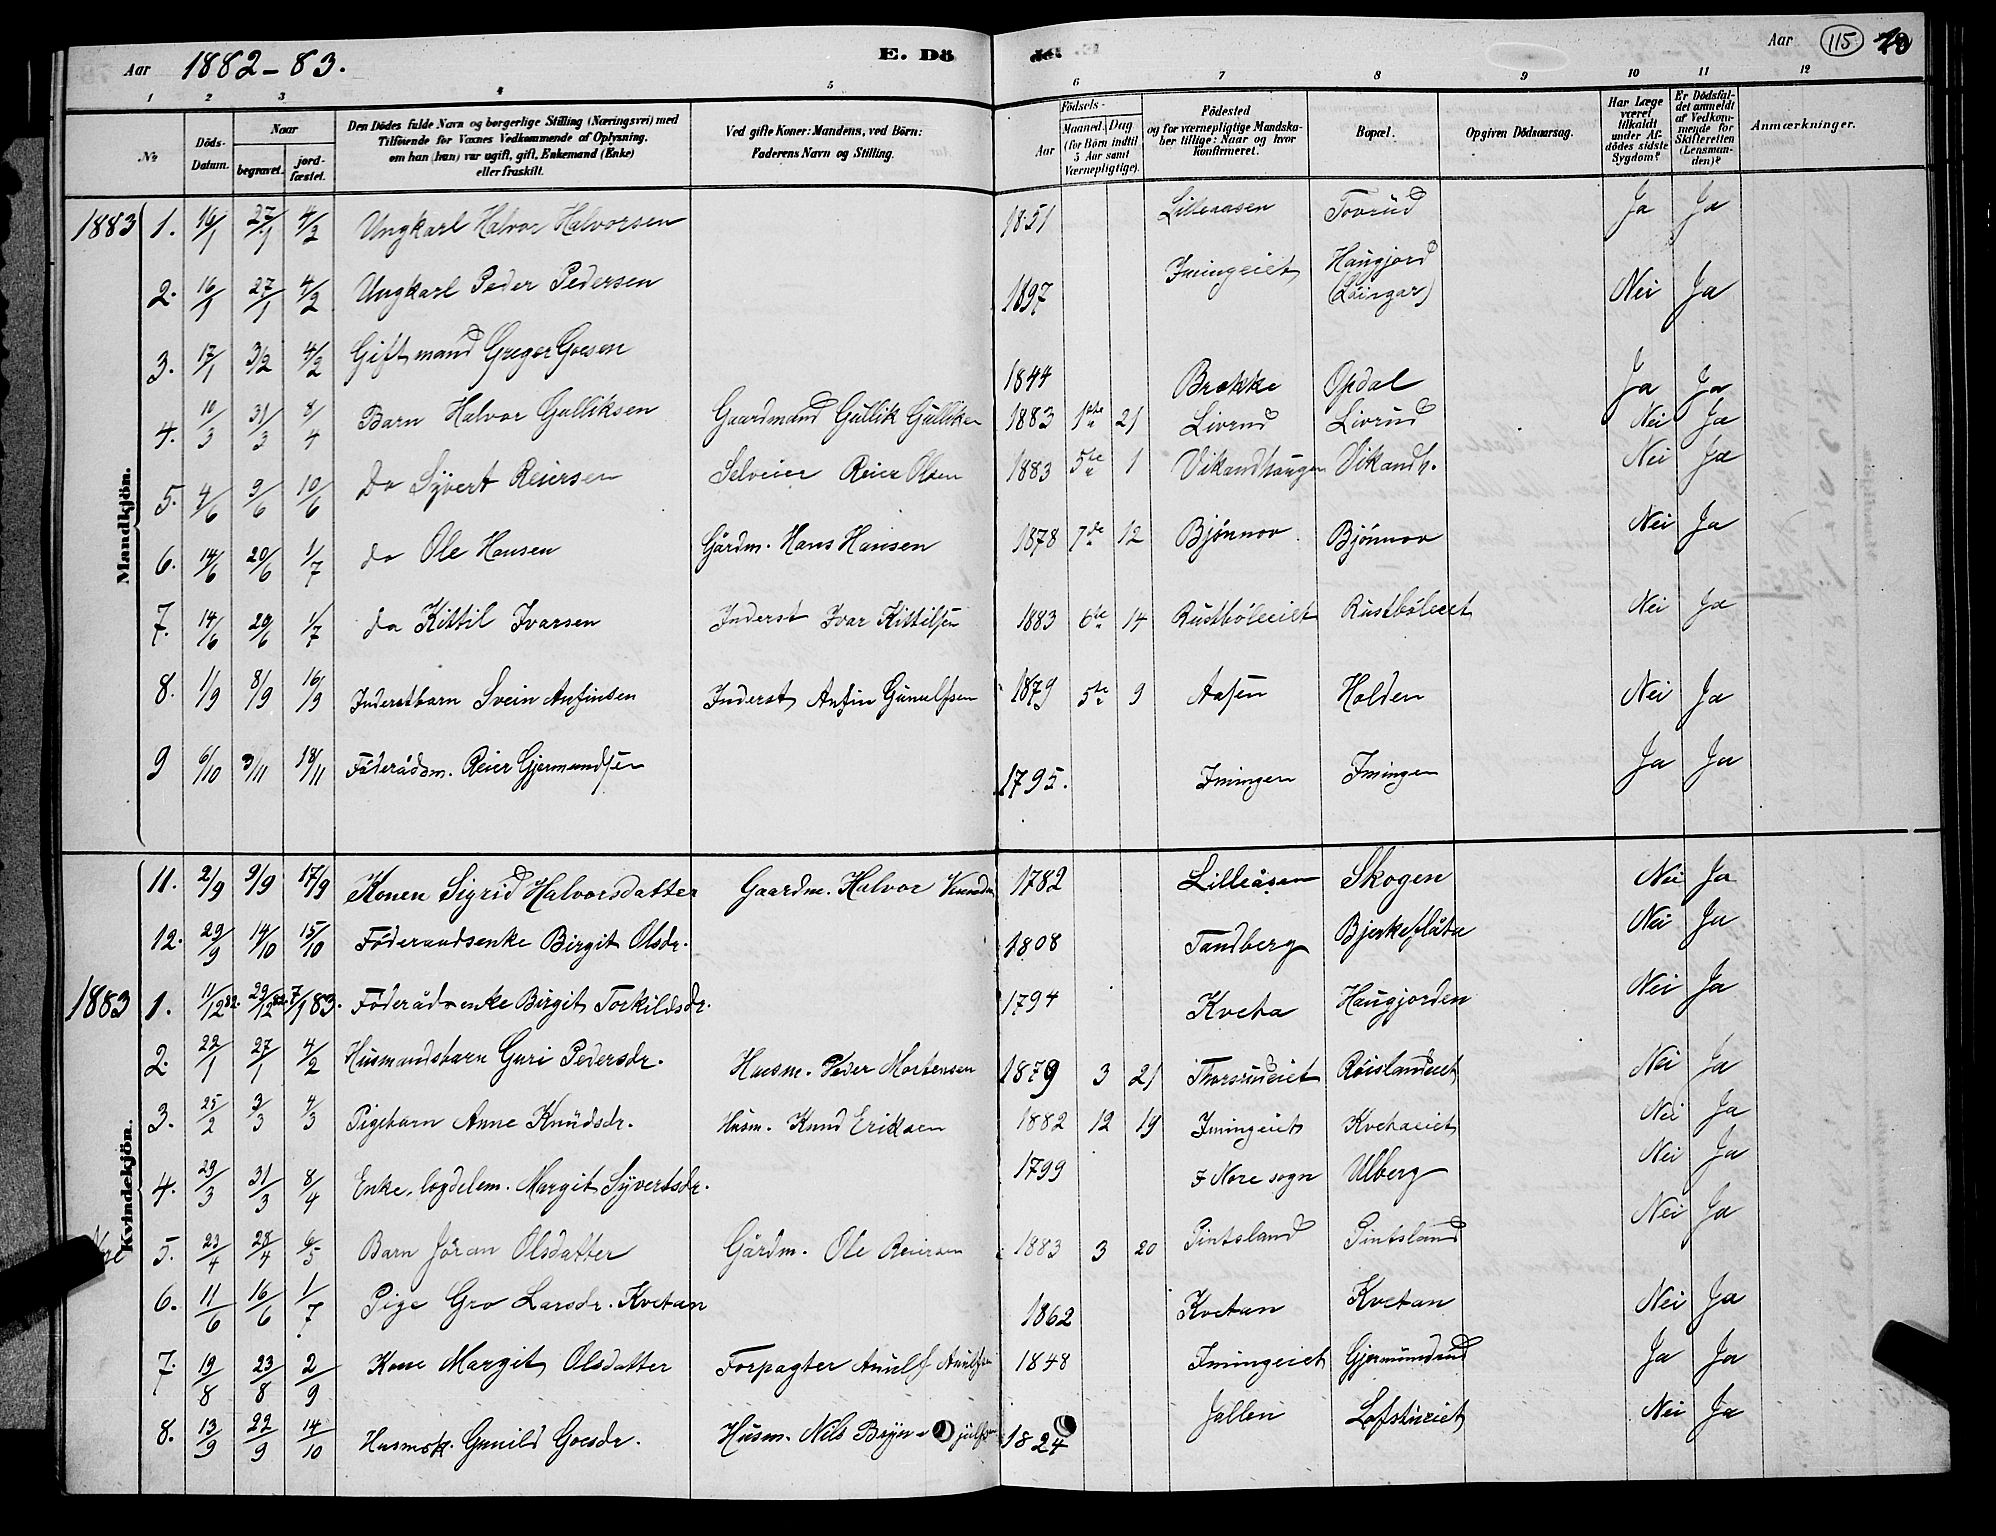 Aar 1882-83. E. Dö det. Aar 115
1 2 3 4 5 6 7 8 9 10 11 12
No
Döds-Datum.
Naar
begravet.
jord-fæstet.
Den Dödes fulde Navn og borgerlige Stilling (Næringsvei) med
Tilföiende for Voxnes Vedkommende af Oplysning,
om han (hun) var ugift, gift, Enkemand (Enke)
eller fraskilt.
Ved gifte Koner: Mandens, ved Börn:
Faderens Navn og Stilling.
Födsels-
Aar
Maaned. Dag
(for Börn indtil
5 Aar samt
Værnepligtige).
Födested
og for værnepligtige Mandska-
ber tillige: Naar og hvor
konfirmeret.
Bopæl.
Opgiven Dödsaarsag.
Har Læge
været
tilkaldt
under Af-
dödes sidste
Sygdom?
Er Dödsfal-
det anmeldt
af Vedkom-
mende for
Skifteretten
(Lensman-
den)?
Anmærkninger.
Mandkjön.
1883 1. 16/1 27/1 4/2 Ungkarl Halvor Halvorsen 1851 Lilleaasen Tovrud Ja Ja
2. 16/1 27/1 4/2 Ungkarl Peder Pedersen 1897 Imingeiet Haugjord Nei Ja
3. 17/1 3/2 4/2 Gift mand Greger Goesen 1844 Brekke Opdal Ja Ja
4. 10/3 31/3 8/4 Barn Halvor Gulliksen Gaardmand Gullik Gulliksen 1883 1ste 21 Livrud Livrud Nei Ja
5. 4/6 9/6 10/6 do Syvert Reiersen Selveier Reier Olsen 1883 5te 1 Vikandhaugen Vikandh. Nei Ja
6. 14/6 20/6 1/7 do Ole Hansen Gårdm. Hans Hansen 1878 7de 12 Bjønnov Bjønnov Nei Ja
7. 14/6 20/6 1/7 do Kittil Ivarsen Inderst Ivar Kittilsen 1883 6te 14 Rustbøleeiet Rustbøleeiet Nei Ja
8. 1/9 8/9 16/9 Inderstbarn Svein Anfinsen Inderst Anfin Gunulfsen 1879 5te 9 Aasen Holden Nei Ja
9 6/10 3/11 18/11 Föderådsm. Reier Gjermundsen 1795. Imingen Imingen Ja Ja
Kvindekjön.
11. 2/9 9/9 17/9 Konen Sigrid Halvorsdatter Gaardm. Halvor 1782 Lilleåsen Skogen Nei Ja
12. 29/9 14/10 15/10 Föderaadsenke Birgit Olsdr. 1808 Tandberg Bjerkeflåta Nei Ja
1883 1. 11/12 82. 29/12 82. 7/1 83. Föderådsenke Birgit Torkildsdr. 1794 Kveta Haugjorden Nei Ja
2. 22/1 27/1 4/2 Husmandsbarn Guri Pedersdr. Husm. Peder Mortensen 1879 3 21 Thorsrudeiet Røislandeiet Nei Ja
3. 25/2 3/3 4/3 Pigebarn Anne Knudsdr. Husm. Knud Eriksen 1882 12 19 Imingeiet Kvetaeiet Nei Ja
4. 29/3 31/3 8/4 Enke, legdelem. Margit Syvertsdr. 1799 I Nore sogn Ulberg Nei Ja
5. 23/4 28/4 6/5 Barn Jöran Olsdatter Gårdm. Ole Reiersen 1883 3 20 Pintsland Pintsland Nei Ja
6. 11/6 16/6 1/7 Pige Gro Larsdr. Kvetan 1862 Kvetan Kvetan Nei Ja
7. 19/8 23/8 2/9 Kone Margit Olsdatter Forpagter 1848 Imingeiet Gjermundrud Ja Ja
8. 13/9 22/9 14/10 Husmsk. Gunild Goesdr. Husm. Nils 1824 Jallen Nei Ja